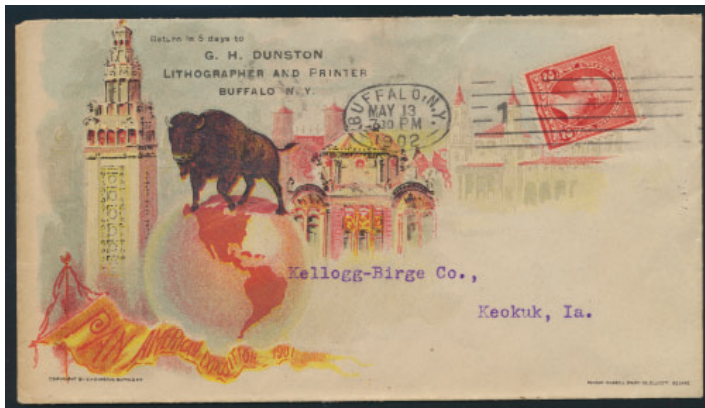 Return in 5 days to
G. H. DUNSTON
LITHOGRAPHER AND PRINTER
BUFFALO N.Y.
BUFFALO, N.Y.
MAY 13
7-30 PM
1902
1
2 2
Kellogg-Birge Co.,
Keokuk, Ia.
PAN AMERICAN EXPOSITION 1901
COPYRIGHT BY
SQUARE